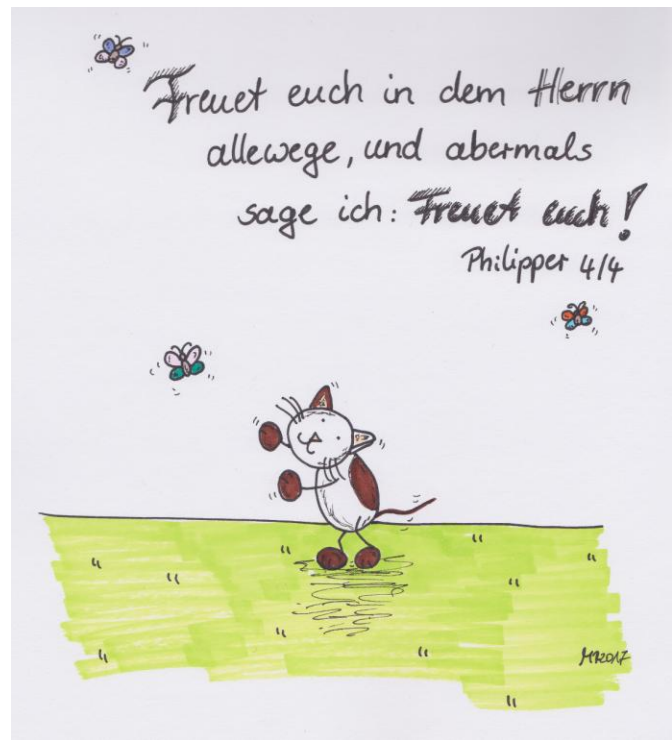 Freuet euch in dem Herrn
allewege, und abermals
sage ich: Freuet euch!
Philipper 4/4